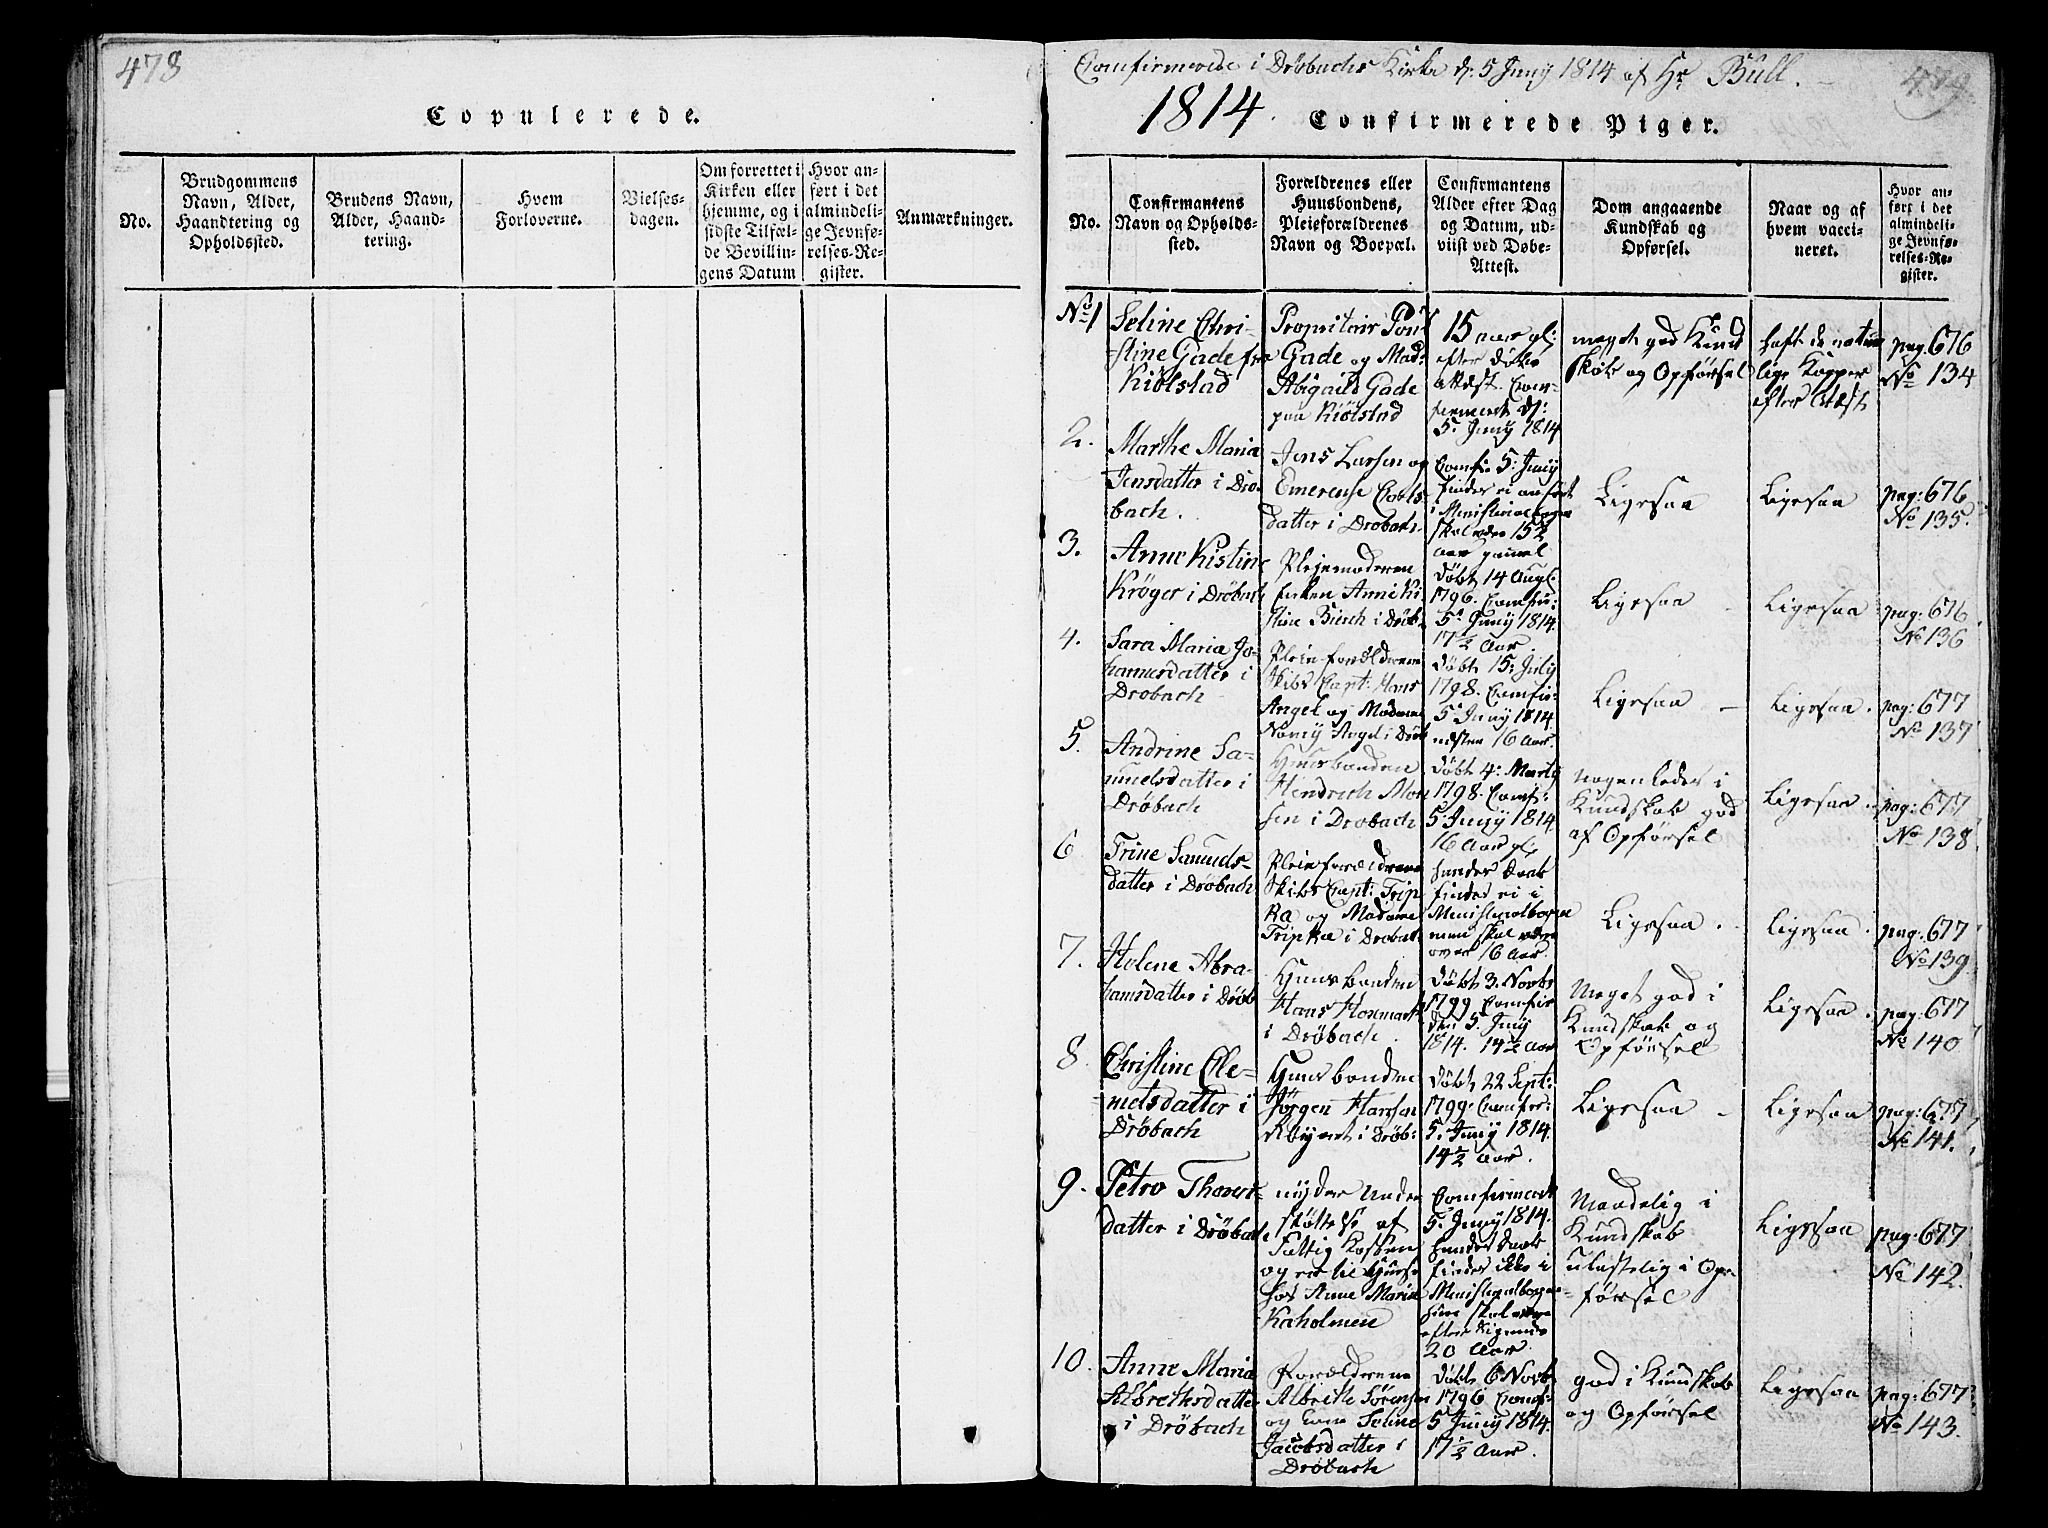 478
Copulerede.
No.
Brudgommens
Navn, Alder,
Haandtering og
Opholdssted.
Brudens Navn,
Alder, Haand-
tering.
Hvem
Forloverne.
Vielses-
dagen.
Om forrettet i
Kirken eller
hjemme, og i
sidste Tilfæl-
de Bevillin-
gens Datum
Hvor an-
ført i det
almindeli-
ge Jevnfø-
relses-Re-
gister.
Anmærkninger.
Confirmerede i Drøbachs Kirke d: 5 Juny 1814 af Hr Bull.
479
1814. Confirmerede Piger.
No.
Confirmantens
Navn og Opholds-
sted.
Forældrenes eller
Huusbondens,
Pleieforældrenes
Navn og Boepæl.
Confirmantens
Alder efter Dag
og Datum, ud-
viist ved Døbe-
Attest.
Dom angaaende
Kundskab og
Opførsel.
Naar og af
hvem vacci-
neret.
Hvor an-
ført i det
almindeli-
ge Jevnfø-
relses-Re-
gister.
No 1
Seline Chri-
stine Gade fra
Kiølstad
Propritair Poul
Gade og Mad:
Abigaild Gade
paa Kiølstad
15 aar gl:
efter døbe
attest. Com-
firmeret d:
5. Juny 1814
meget god Kund
skab og Opførsel
haft de natur
lige Kopper
efter Attest
pag. 676
No 134
2.
Marthe Maria
Jensdatter i Drø-
bach.
Jens Larsen og
Emerense Carls-
datter i Drøbach.
Comfir 5: Juny
findes ei anført
i Ministerialbogen
skal være 15½
aar gammel
Ligesaa
Ligesaa
pag: 676
No 135.
3.
Anne Kistine
Krøger i Drøbach
Plejemoderen
Enken Anne Ki
stine Biesch i Drøb.
døbt 14 Aug:
1796. Comfir:
5: Juny 1814.
17½ Aar
Ligesaa
Ligesaa
pag: 676
No 136
4.
Sara Maria Jo-
hannesdatter i
Drøbach
Pleie forældrene
Skibs Capt: Hans
Angel og Madame
Nancy Angel i Drøb
døbt 15: July
1798. Comfir:
5: Juny 1814.
næsten 16 Aar.
Ligesaa
Ligesaa.
pag: 677
No 137
5.
Andrine Sa-
muelsdatter i
Drøbach
Huusbonden
Hendrich Mon
sen i Drøbach
døbt 4: Marty
1798. Comf:
5: Juny 1814.
16 Aar gl:
nogenledes i
Kundskab god
af Opførsel
Ligesaa.
pag: 677
No 138.
6
Trine Samuels-
datter i Drøbach
Pleie forældrene
Skibs Capt: Trip
ka og Madame
Tripka i Drøbach
hendes daab
findes ei i
Ministerialbogen
men skal være
over 16 Aar.
Ligesaa.
Ligesaa.
pag. 677
No 139
7.
Helene Abra-
hamsdatter i Drøb
Huusbonden
Hans Honmark
i Drøbach.
døbt 3. Novbr
1799 Comfir
den 5. Juny
1814. 14½ Aar
Meget god i
Kundskab og
Opførsel
Ligesaa.
pag: 677
No 140
8.
Christine Cle-
metsdatter i
Drøbach
Huusbonden
Jørgen Hansen
Røyert i Drøb:
døbt 22 Sept:
1799. Comfir:
5. Juny 1814.
14½ Aar.
Ligesaa
Ligesaa
pag: 677
No 141.
9.
Petro Thores-
datter i Drøbach
nyder Under
støttelse af
Fattig Kassen
og er til Huuse
hos Anne Maria
Kaholmen
Comfirmeret
5: Juny 1814.
hendes daab
findes ikke i
Ministerialbogen
hun skal være
efter Sigende
20 Aar.
Maadelig i
Kundskab
ulastelig i Op-
førsel
Ligesaa
pag: 677
No 142.
10.
Anne Maria
Albrethsdatter
i Drøbach
Forældrene
Albreth Sørensen
og Seline
Jacobsdatter i
Drøbach
Døbt 6 Novbr
1796 Comf:
5 Juny 1814.
17½ Aar.
god i Kundskab
og Opførsel
Ligesaa
pag: 677
No 143.